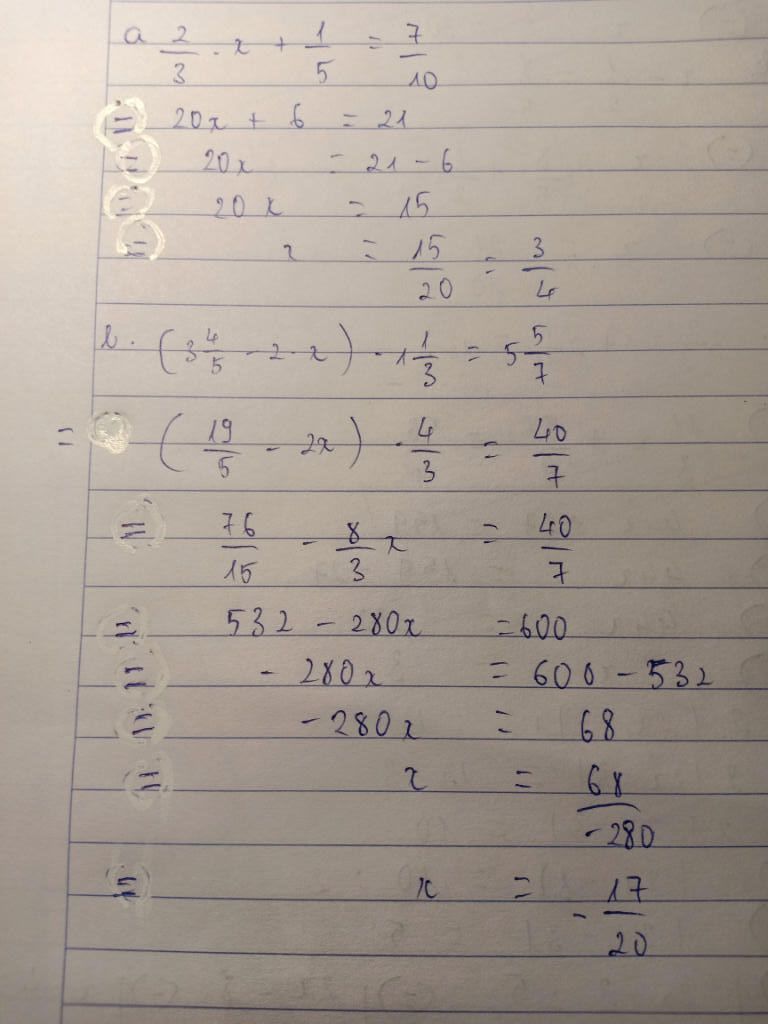 a 2/3 . x + 1/5 = 7/10
= 20x + 6 = 21
= 20x = 21 - 6
= 20x = 15
= x = 15/20 = 3/4
b. (3 4/5 - 2 . x) . 1 1/3 = 5 5/7
= (19/5 - 2x) . 4/3 = 40/7
= 76/15 - 8/3 x = 40/7
= 532 - 280x = 600
= - 280x = 600 - 532
= - 280x = 68
= x = 68/-280
= x = - 17/20